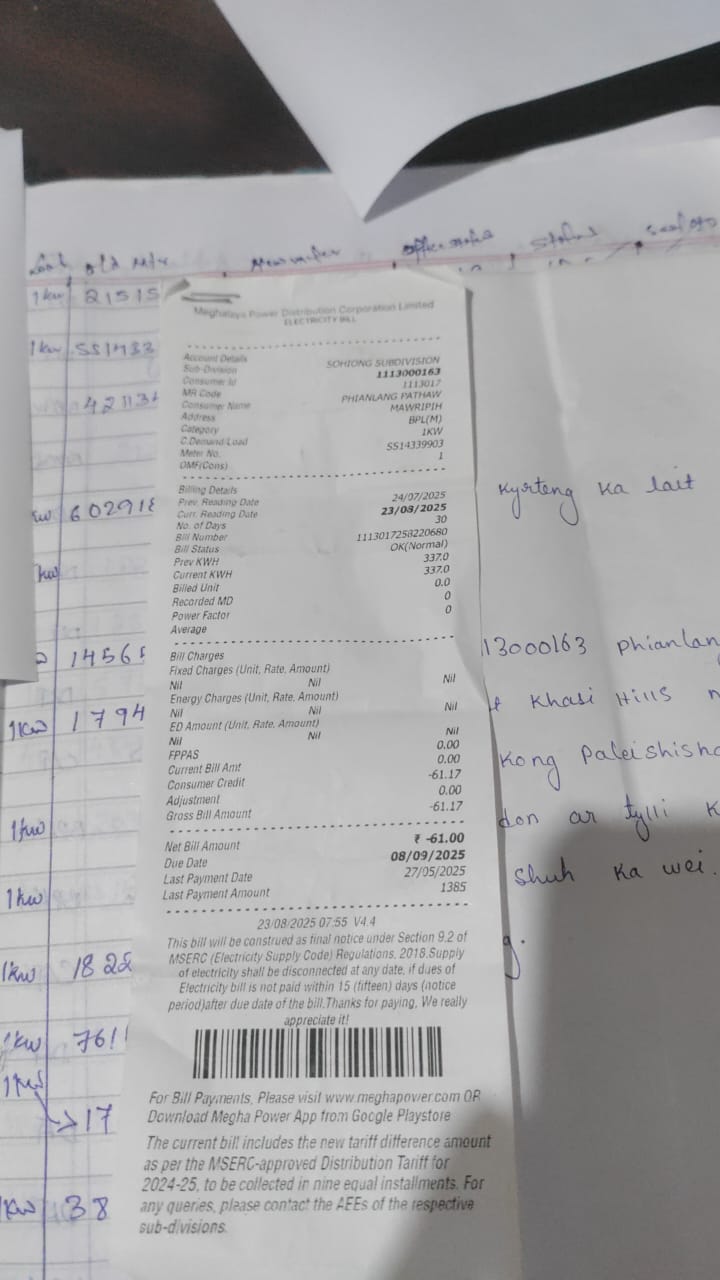 old Mtr
1kw 21515
1kw SS1433
42113
kw 60291
kw
1456
1kw 1794
1kw
1kw
1kw 1822
1kw 761
1kw
17
kw 38
Meghalaya Power Distribution Corporation Limited
ELECTRICITY BILL
Account Details
Sub-Division SOHIONG SUBDIVISION
Consumer Id 1113000163
MR Code 1113017
Consumer Name PHIANLANG PATHAW
Address MAWRIPIH
Category BPL(M)
C.Demand/Load 1KW
Meter No. SS14339903
OMF(Cons) 1
Billing Details
Prev. Reading Date 24/07/2025
Curr. Reading Date 23/08/2025
No. of Days 30
Bill Number 1113017258220680
Bill Status OK(Normal)
Prev KWH 337.0
Current KWH 337.0
Billed Unit 0.0
Recorded MD 0
Power Factor 0
Average
Bill Charges
Fixed Charges (Unit, Rate, Amount)
Nil Nil Nil
Energy Charges (Unit, Rate, Amount)
Nil Nil Nil
ED Amount (Unit, Rate, Amount)
Nil Nil Nil
FPPAS 0.00
Current Bill Amt 0.00
Consumer Credit -61.17
Adjustment 0.00
Gross Bill Amount -61.17
Net Bill Amount ₹ -61.00
Due Date 08/09/2025
Last Payment Date 27/05/2025
Last Payment Amount 1385
23/08/2025 07:55 V4.4
This bill will be construed as final notice under Section 9.2 of
MSERC (Electricity Supply Code) Regulations, 2018.Supply
of electricity shall be disconnected at any date, if dues of
Electricity bill is not paid within 15 (fifteen) days (notice
period)after due date of the bill.Thanks for paying, We really
appreciate it!
For Bill Payments, Please visit www.meghapower.com OR
Download Megha Power App from Google Playstore
The current bill includes the new tariff difference amount
as per the MSERC-approved Distribution Tariff for
2024-25, to be collected in nine equal installments. For
any queries, please contact the AEEs of the respective
sub-divisions.
kyrteng ka lait
13000163 phianlan
Khasi Hills
Kong
don ar tylli K
shuh ka wei.